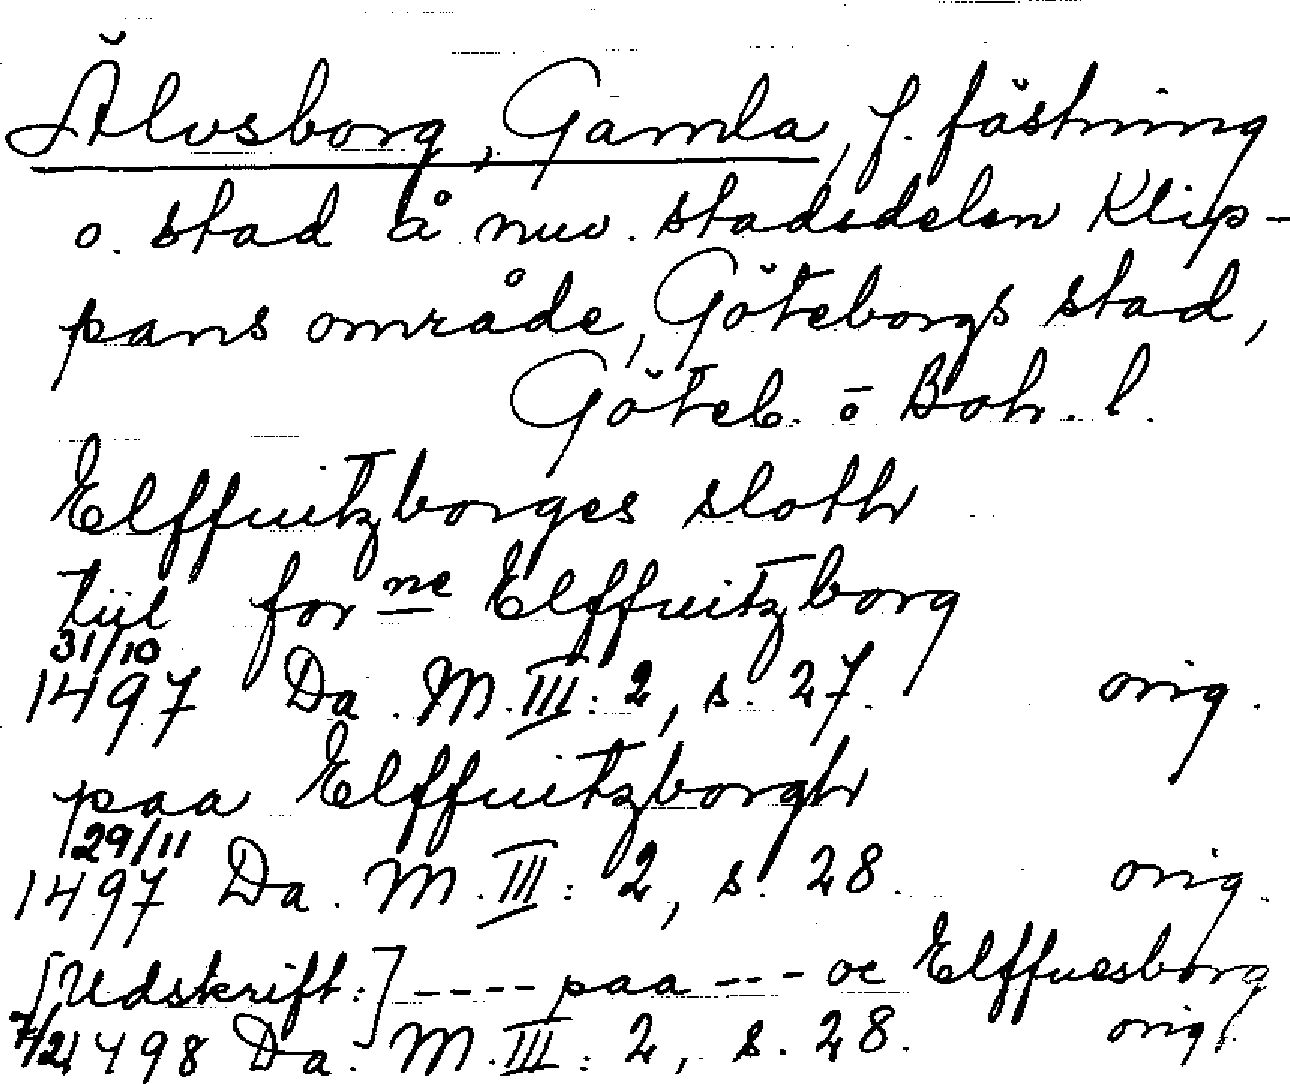 Älvsborg, Gamla, f. fästning
o. stad å nuv. stadsdelen Klip-
pans område, Göteborgs stad,
Göteb. o Boh. l.
Elffuitzborges sloth
tiil for ne Elffuitzborg
31/10
1497 Da. M. III: 2, s. 27. orig.
paa Elffuitzborgh
29/11
1497 Da. M. III: 2, s. 28. orig.
[Udskrift:] ---- paa --- oc Elffuesborg
7/2 1498 Da. M. III: 2, s. 28. orig.